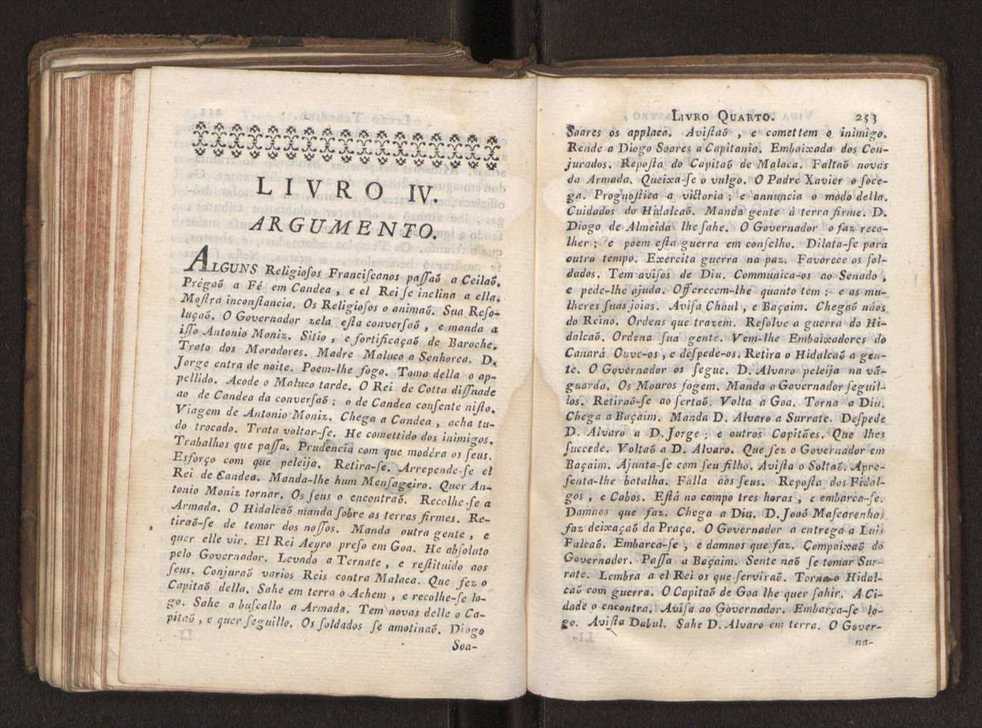 LIVRO IV.
ARGUMENTO.
ALGUNS Religiosos Franciscanos passaõ a Ceilaõ.
Prégaõ a Fé em Candea, e el Rei se inclina a ella.
Mostra inconstancia. Os Religiosos o animaõ. Sua Reso-
luçaõ. O Governador zela esta conversaõ, e manda a
isso Antonio Moniz. Sitio, e fortificaçaõ de Baroche.
Trato dos Moradores. Madre Maluco o Senhorea. D.
Jorge entra de noite. Poem-lhe fogo. Toma della o ap-
pellido. Acode o Maluco tarde. O Rei de Cotta dissuade
ao de Candea da conversaõ; o de Candea consente nisto.
Viagem de Antonio Moniz. Chega a Candea, acha tu-
do trocado. Trata voltar-se. He comettido dos inimigos.
Trabalhos que passa. Prudencia com que modéra os seus.
Esforço com que peleija. Retira-se. Arrepende-se el
Rei de Candea. Manda-lhe hum Mensageiro. Quer An-
tonio Moniz tornar. Os seus o encontraõ. Recolhe-se a
Armada. O Hidalcaõ manda sobre as terras firmes. Re-
tiraõ-se de temor dos nossos. Manda outra gente, e
quer elle vir. El Rei Aeyro preso em Goa. He absoluto
pelo Governador. Levado a Ternate, e restituido aos
seus. Conjuraõ varios Reis contra Malaca. Que fez o
Capitaõ della. Sahe em terra o Achem, e recolhe-se lo-
go. Sahe a buscallo a Armada. Tem novas delle o Ca-
pitaõ, e quer seguillo. Os soldados se amotinaõ. Diogo
Soa-
LIVRO QUARTO. 253
Soares os applaca. Avistaõ, e comettem o inimigo.
Rende a Diogo Soares a Capitania. Embaixada dos Con-
jurados. Reposta do Capitaõ de Malaca. Faltaõ novas
da Armada. Queixa-se o vulgo. O Padre Xavier o soce-
ga. Prognostica a victoria; e annuncia o modo della.
Cuidados do Hidalcaõ. Manda gente á terra firme. D.
Diogo de Almeida lhe sahe. O Governador o faz reco-
lher; e poem esta guerra em conselho. Dilata-se para
outro tempo. Exercita guerra na paz. Favorece os sol-
dados. Tem avisos de Diu. Communica-os ao Senado,
e pede-lhe ajuda. Offerecem-lhe quanto tem; e as mu-
lheres suas joias. Avisa Chaul, e Baçaim. Chegaõ náos
do Reino. Ordens que trazem. Resolve a guerra do Hi-
dalcaõ. Ordena sua gente. Vem-lhe Embaixadores do
Canará Ouve-os, e déspede-os. Retira o Hidalcaõ a gen-
te. O Governador os segue. D. Alvaro peleija na vã-
guarda. Os Mouros fogem. Manda o Governador seguil-
los. Retiraõ-se ao sertaõ. Volta a Goa. Torna a Diu.
Chega a Baçaim. Manda D. Alvaro a Surrate. Despede
D. Alvaro a D. Jorge; e outros Capitães. Que lhes
succede. Voltaõ a D. Alvaro. Que fez o Governador em
Baçaim. Ajunta-se com seu filho. Avista o Soltaõ. Apre-
senta-lhe batalha. Falla aos seus. Reposta dos Fidal-
gos, e Cabos. Está no campo tres horas, e embarca-se.
Damnos que faz. Chega a Diu. D. Joaõ Mascarenhas
faz deixaçaõ da Praça. O Governador a entrega a Luis
Falcaõ. Embarca-se, e damnos que faz. Compaixaõ do
Governador. Passa a Baçaim. Sente naõ se tomar Sur-
rate. Lembra a el Rei os que serviraõ. Torna o Hidal-
caõ com guerra. O Capitaõ de Goa lhe quer sahir. A Ci-
dade o encontra. Avisa ao Governador. Embarca-se lo-
go. Avista Dabul. Sahe D. Alvaro em terra. O Gover-
na-